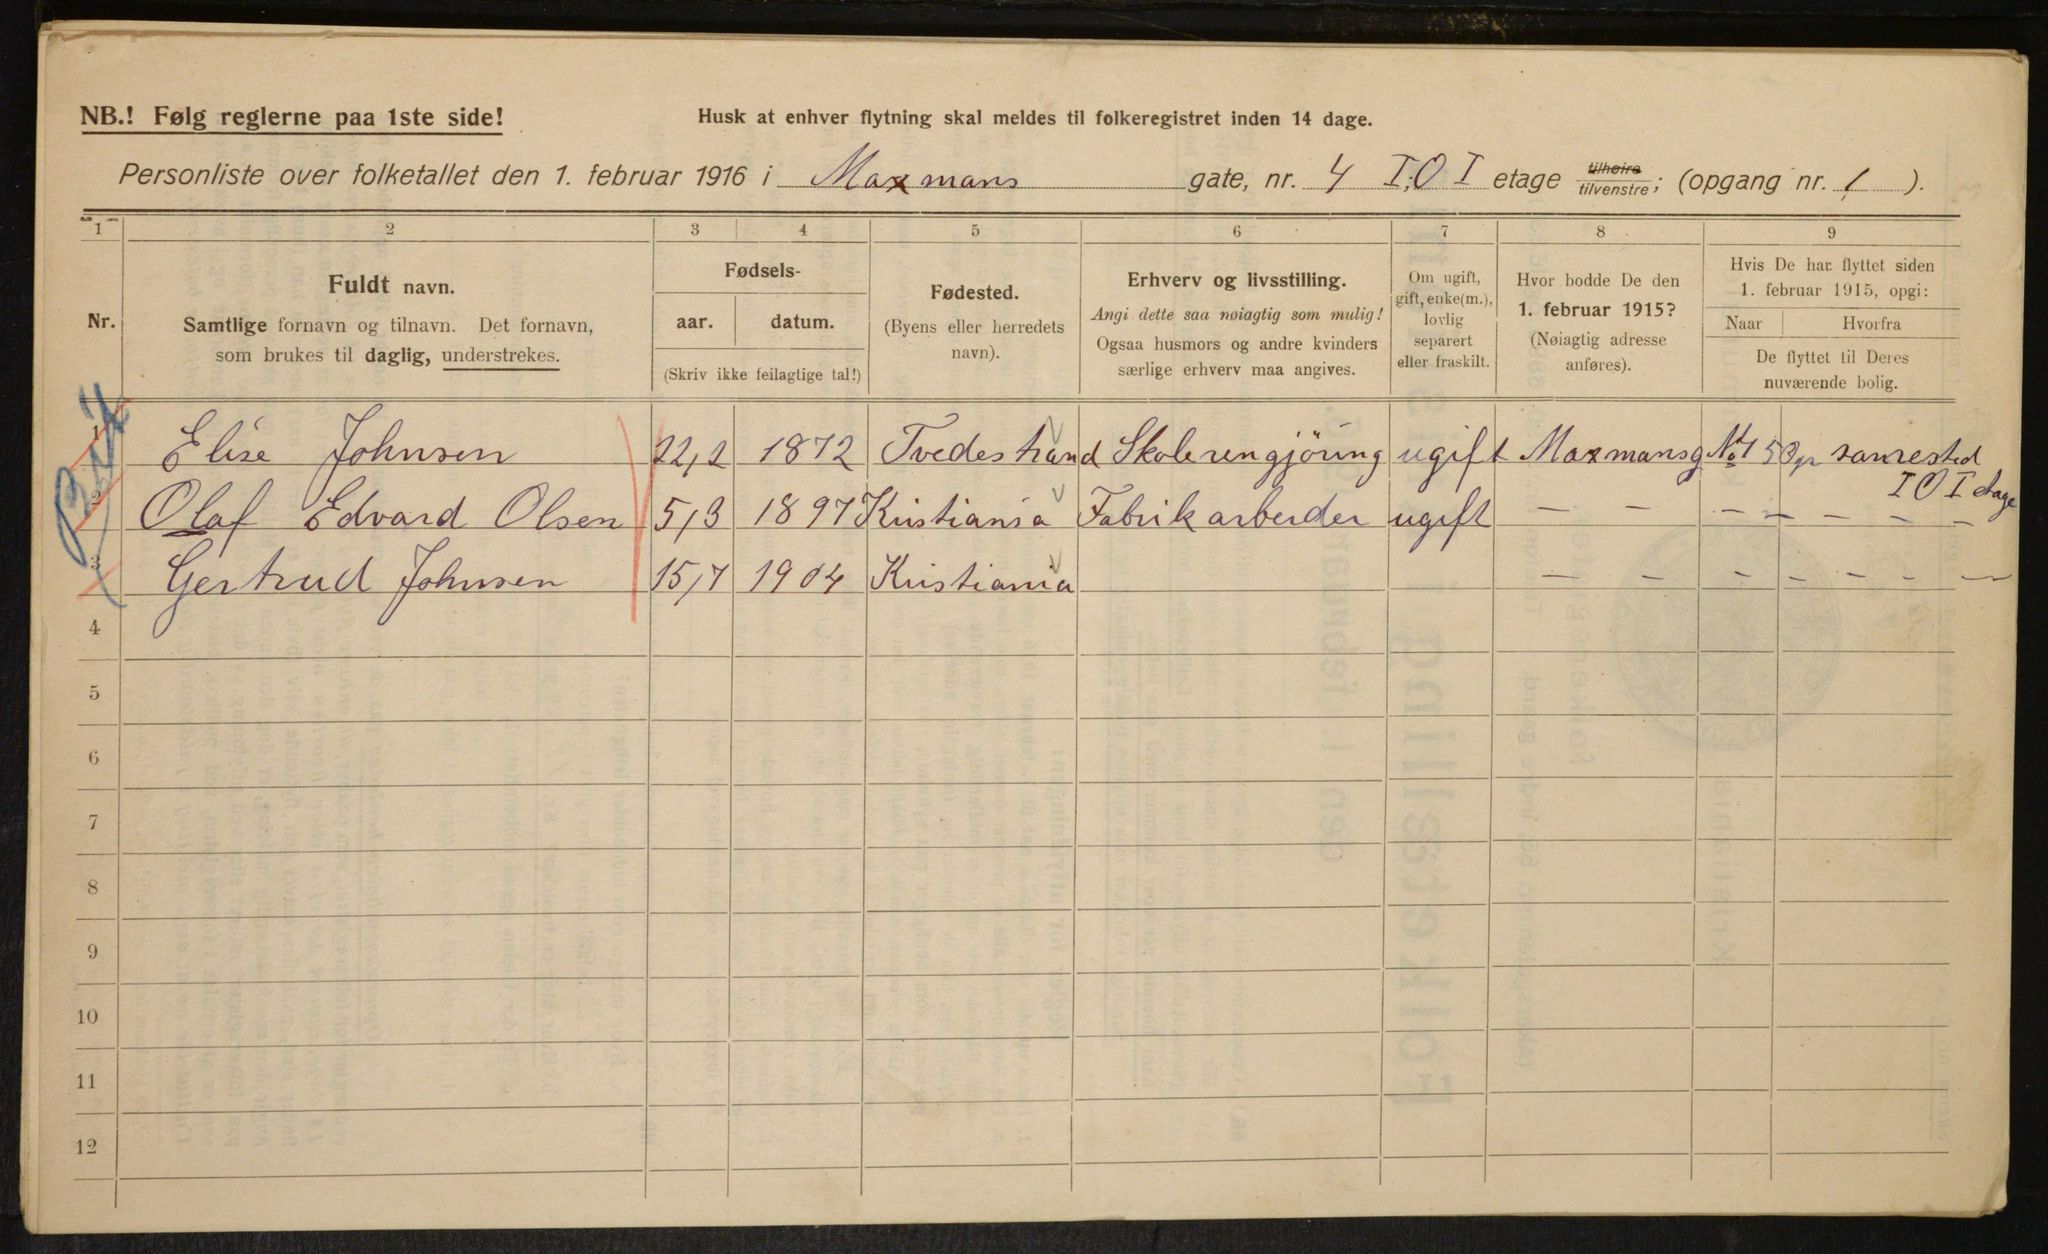 NB.! Følg reglerne paa 1ste side!
Husk at enhver flytning skal meldes til folkeregistret inden 14 dage.
Personliste over folketallet den 1. februar 1916 i Maxmans gate, nr. 4 I, O I etage tilhøire tilvenstre; (opgang nr. 1).
1 2 3 4 5 6 7 8 9
Nr.
Fuldt navn.
Samtlige fornavn og tilnavn. Det fornavn,
som brukes til daglig, understrekes.
Fødsels-
aar. datum.
(Skriv ikke feilagtige tal!)
Fødested.
(Byens eller herredets
navn).
Erhverv og livsstilling.
Angi dette saa nøiagtig som mulig!
Ogsaa husmors og andre kvinders
særlige erhverv maa angives.
Om ugift,
gift, enke(m.),
lovlig
separert
eller fraskilt.
Hvor bodde De den
1. februar 1915?
(Nøiagtig adresse
anføres).
Hvis De har flyttet siden
1. februar 1915, opgi:
Naar Hvorfra
De flyttet til Deres
nuværende bolig.
1 Elise Johnsen 22,2 1872 Tvedestrand Skolerengjöring ugift Maxmansg samested
I O I etage
2 Olaf Edvard Olsen 5,3 1897 Kristiania Fabrikarbeider ugift — — — — — — —
3 Gertrud Johnsen 15,7 1904 Kristiania — — — — — — —
4
5
6
7
8
9
10
11
12